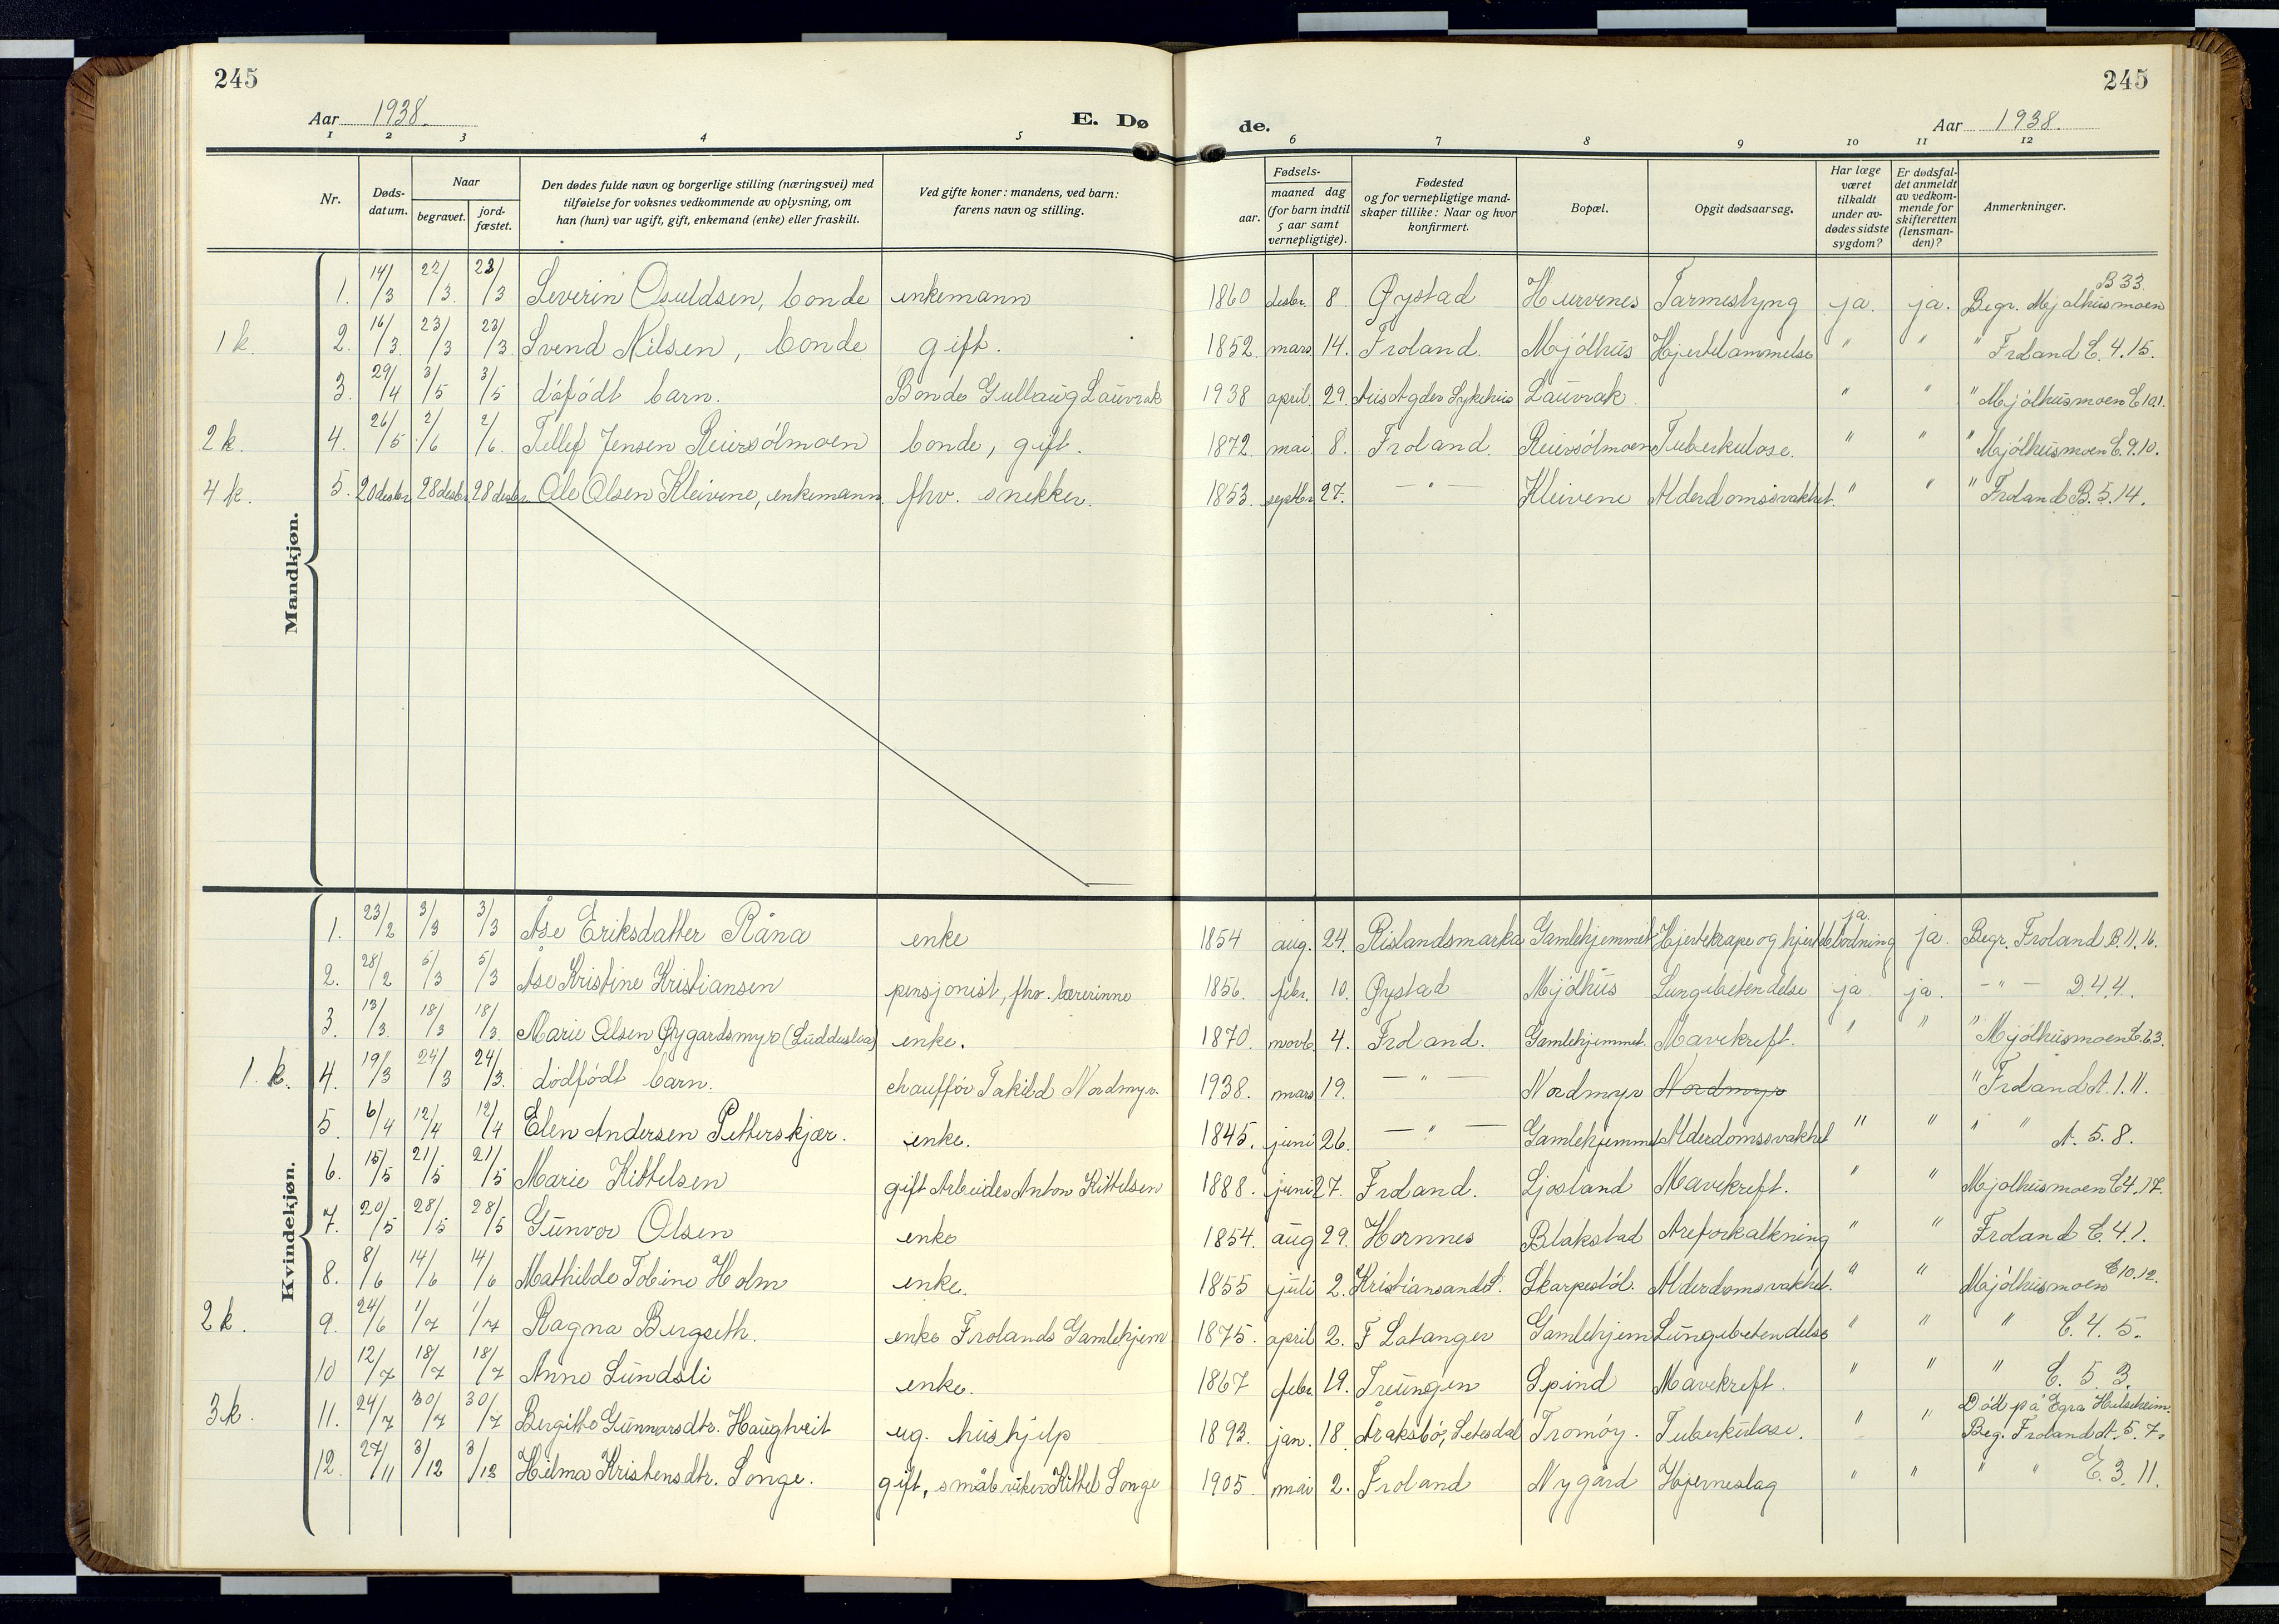 245
245
Aar 1938.
E. Dø
de.
Aar 1938.
1 2 3 4 5 6 7 8 9 10 11 12
Nr.
Døds-datum.
Naar
begravet.
jord-fæstet.
Den dødes fulde navn og borgerlige stilling (næringsvei) med
tilføielse for voksnes vedkommende av oplysning, om
han (hun) var ugift, gift, enkemand (enke) eller fraskilt.
Ved gifte koner: mandens, ved barn:
farens navn og stilling.
Fødsels-
aar.
maaned dag
(for barn indtil
5 aar samt
vernepligtige).
Fødested
og for vernepligtige mand-
skaper tillike: Naar og hvor
konfirmert.
Bopæl.
Opgit dødsaarsag.
Har læge
været
tilkaldt
under av-
dødes sidste
sygdom?
Er dødsfal-
det anmeldt
av vedkom-
mende for
skifteretten
(lensman-
den)?
Anmerkninger.
Mandkjøn.
1. 14/3 22/3. 23/3 Severin Osuldsen, bonde enkemann 1860 desbr. 8. Øystad Hurvenes Tarmeslyng ja. ja. Begr. Mjølhusmoen B 33.
1 k. 2. 16/3. 23/3 23/3. Svend Nilsen, bonde gift. 1852. mars 14. Froland. Mjølhus Hjertelammelse " " " Froland C. 4.15.
3. 29/4 3/5 3/5 døfødt barn. Bonde Gullaug Lauvrak 1938 april 29. Aust Agder Sykehus Lauvrak " " " Mjølhusmoen C 10.1.
2 k. 4. 26/5 2/6 2/6. Tellef Jensen Reiersølmoen bonde, gift. 1872. mai 8. Froland. Reiersølmoen Tuberkulose. " " " Mjølhusmoen C. 9.10.
4 k. 5. 20 desbr. 28 desbr. 28 desbr. Ole Olsen Kleivene, enkemann. fhv. snekker. 1853. septbr. 27. — " — Kleivene Alderdomssvakhet. " " " Froland B. 5.14.
Kvindekjøn.
1. 23/2 3/3 3/3 Åse Eriksdatter Råna enke 1854 aug. 24. Rislandsmarka Gamlehjemmet Hjertekrampe og hjerteblødning ja. ja. Begr. Froland B. 11. 16.
2. 28/2 5/3 5/3 Åse Kristine Kristiansen pensjonist, fhv. lærerinne 1856. febr. 10. Øystad Mjølhus Lungebetendelse ja. ja. — " — D. 4.4.
3. 13/3. 18/3 18/3. Marie Olsen Øygardsmyr (Luddeslia) enke. 1870. novb. 4. Froland. Gamlehjemmet. Mavekreft. " " " Mjølhusmoen C. 6.3.
1. k. 4. 19/3 24/3 24/3. dødfødt barn. chauffør Takild Nordmyr. 1938. mars 19. — " — Nordmyr Nordmyr " Froland A. 1. 11.
5. 6/4 12/4 12/4 Elen Andersen Petterskjær. enke. 1845. juni 26. — " — Gamlehjemmet Alderdomssvakhet " " " " A. 5. 8.
6. 15/5 21/5 21/5 Marie Kittelsen gift Arbeider Anton Kittelsen 1888. juni 27. Froland. Ljosland Mavekreft. " " Mjølhusmoen C 4. 17.
7. 20/5 28/5 28/5 Gunvor Olsen enke 1854. aug 29. Hornnes Blakstad Areforkalkning " " Froland C. 4.1.
8. 8/6 14/6 14/6 Mathilde Tobine Holm enke. 1855 juli 2. Kristiansand S. Skarpestøl. Alderdomssvakhet. " " Mjølhusmoen C 10.12.
2 k. 9. 24/6 1/7 1/7 Ragna Bergseth. enke Frolands Gamlehjem 1875. april 2. F Latanger Gamlehjem Lungebetendelse " " " C. 4. 5.
10 12/7 18/7 18/7 Anne Lundsli enke. 1867 febr. 19. Treungen Spind Mavekreft. " " " C. 5 3.
3k. 11. 24/7 30/7 30/7 Bergitte Gunnarsdtr. Haugtveit ug. hushjelp 1893. jan. 18. Åraksbø, Setesdal Tromøy. Tuberkulose. " " Død på Egra Helseheim. Beg. Froland A. 5. 7.
12. 27/11 3/12 3/12 Hilma Kristensdtr. Songe. gift, småbruker Kittel Songe 1905. mai 2. Froland Nygård Hjerneslag " " " " C. 3. 11.